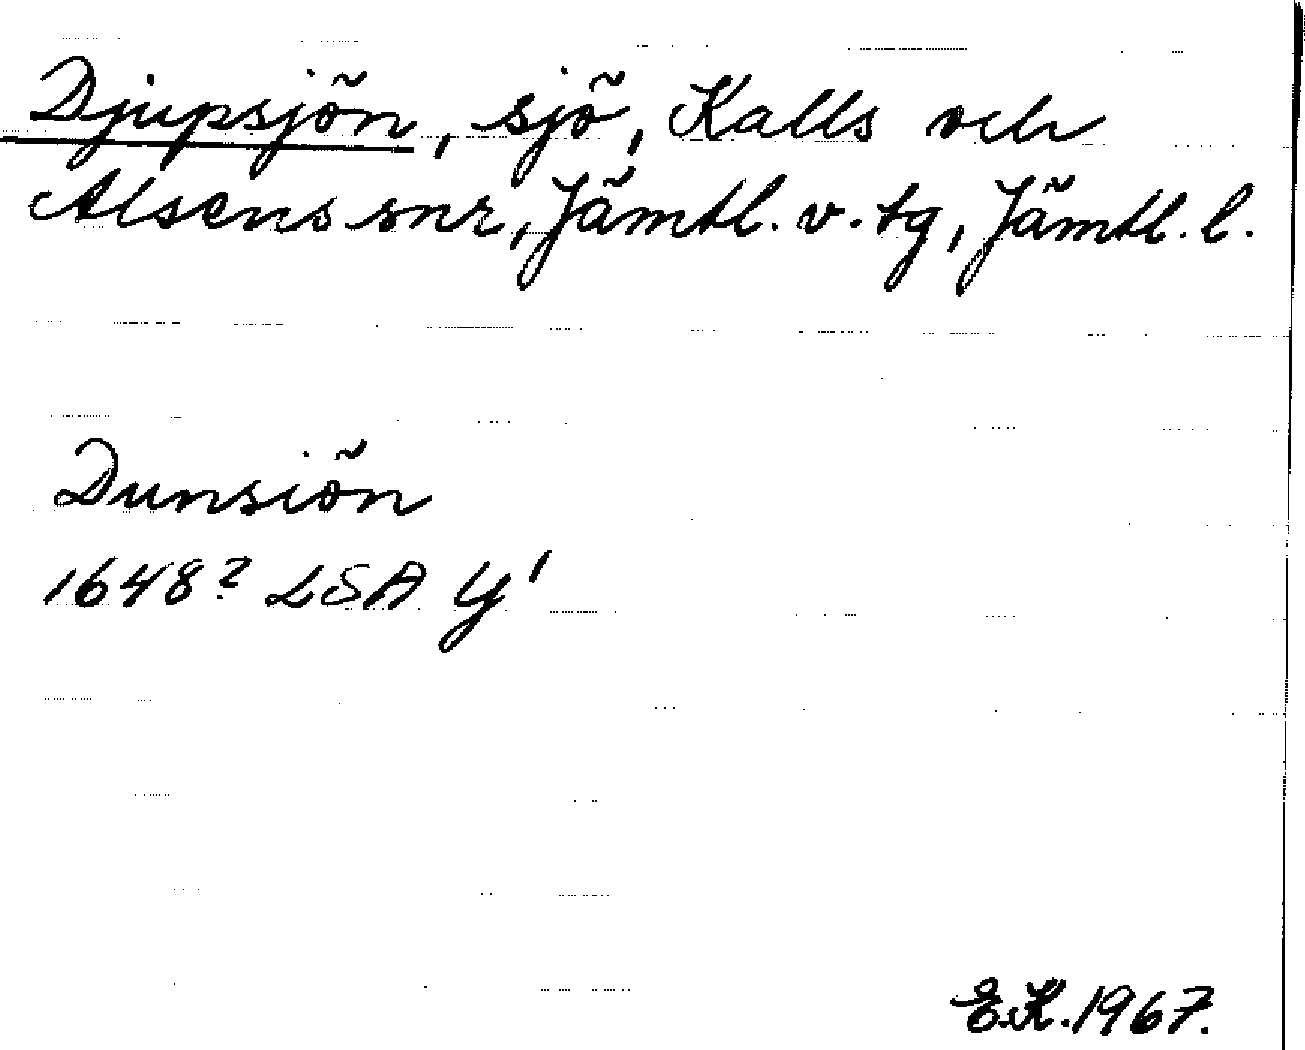 Djupsjön, sjö, Kalls och
Alsens snr, Jämtl. v. tg, Jämtl. l.
Dunsiön
1648? LSA Y1
E.K. 1967.